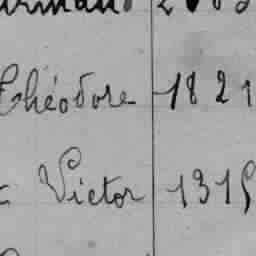 Théodore 1821
Victor 1315